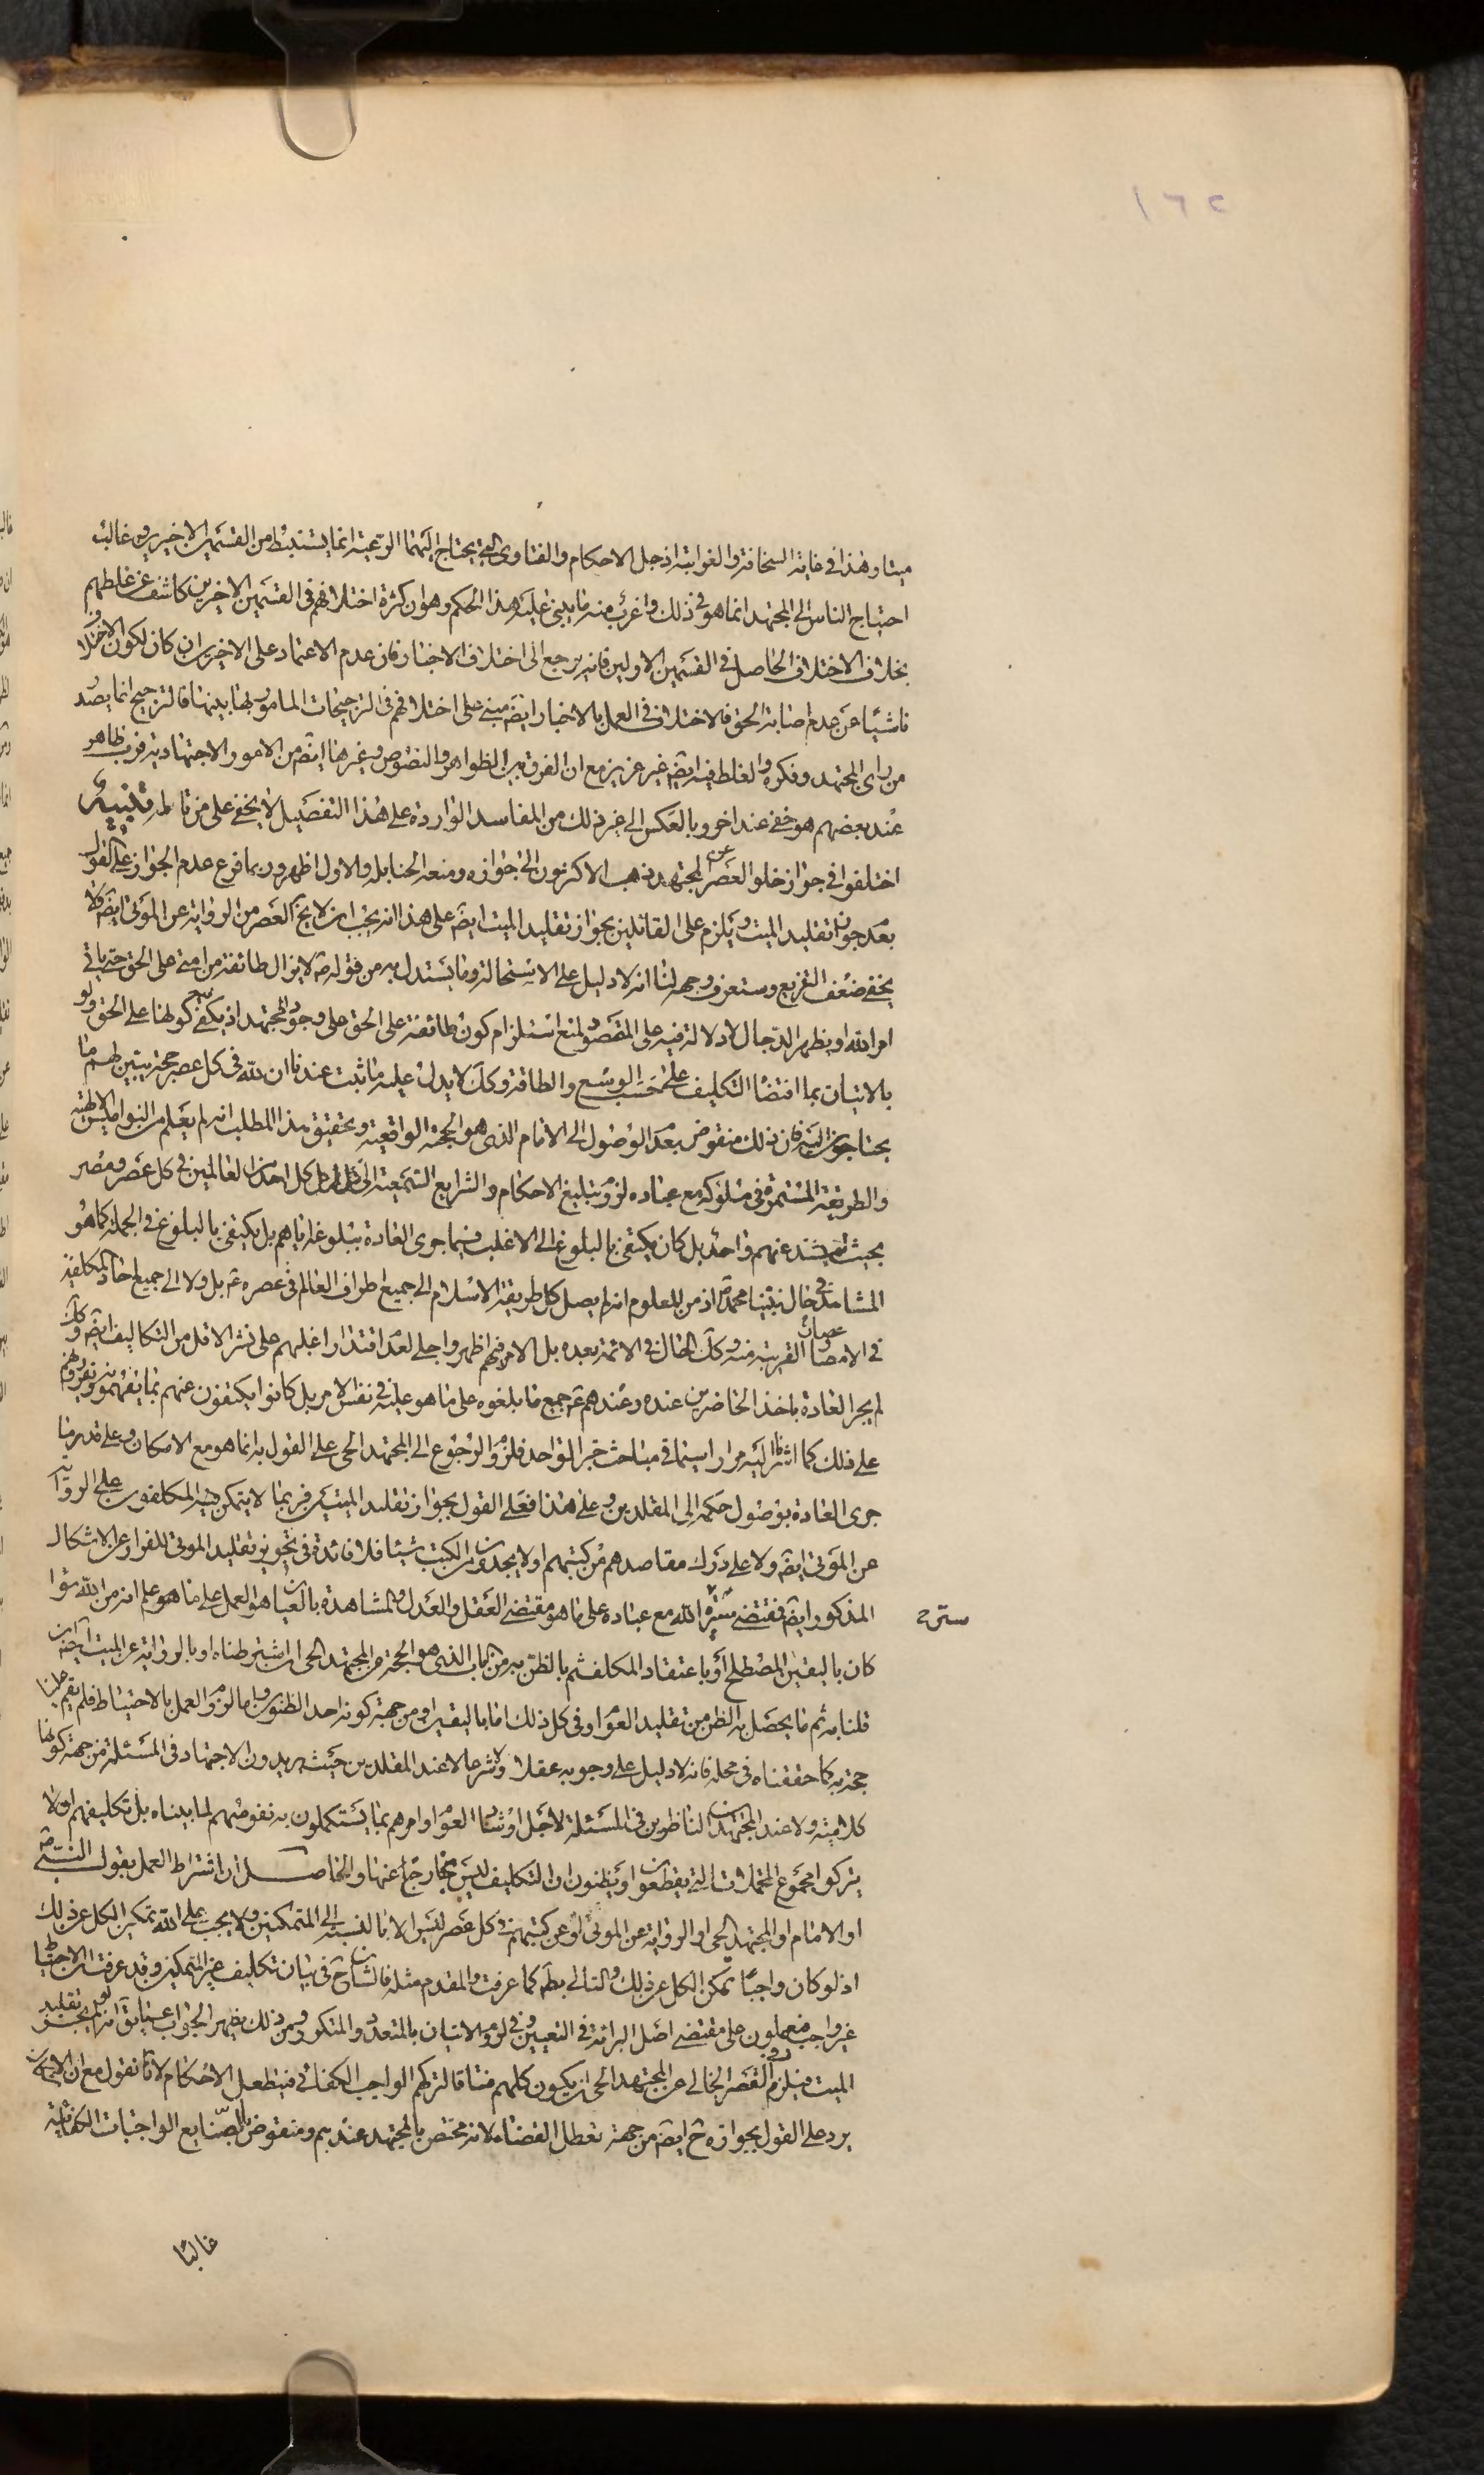 ١٦٢
ميتا وهذا في غاية السخافة والغرابة اذ جل الاحكام والفتاوى التي يحتاج اليها الرعية انما يستنبط من القسمين الاخيرين وغالب
احتياج الناس الى المجتهد انما هو في ذلك واغرب منه ما يبنى عليه هذا الحكم وهو ان كثرة اختلافهم في القسمين الاخرين كاشف عن غلطهم
بخلاف الاختلاف الحاصل في القسمين الاولين فانه يرجع الى اختلاف الاخبار فان عدم الاعتماد على الاخرين ان كان لكون الاختلاف
ناشيا عن عدم اصابة الحق فالاختلاف في العمل بالاخبار ايضا مبني على اختلافهم في الترجيحات المامور بها بينها فالترجيح انما يصدر
من راى المجتهد وفكره والغلط فيه ايضا غير عزيز مع ان الفرق بين الظواهر والنصوص وغيرها ايضا من الامور الاجتهادية فرب ظاهر
عند بعضهم هو خفي عند اخر وبالعكس الى غير ذلك من المفاسد الواردة على هذا التفصيل لا يخفى على من تامل تنبيه
اختلفوا في جواز خلو العصر عن المجتهد فذهب الاكثرون الى جوازه ومنعه الحنابلة والاول اظهر وربما فرع عدم الجواز على القول
بعدم جواز تقليد الميت ويلزم على القائلين بجواز تقليد الميت ايضا على هذا انه يجب ان لا يخ العصر من الرواية عن الموتى ايضا ولا
يخفى ضعف التفريع وستعرف وجهه لنا انه لا دليل على الاستحالة وما يستدل به من قوله ص لا يزال طائفة من امتي على الحق حتى ياتي
امر الله او يظهر الدجال لا دلالة فيه على المقصود لمنع استلزام كون طائفة على الحق على وجود المجتهد اذ يكفي كونها على الحق ولو
بالاتيان بما اقتضا التكليف على حسب الوسع والطاقة وكك لا يدل عليه ما ثبت عندنا ان لله في كل عصر حجة يبين لهم ما
يحتاجون اليه فان ذلك منقوض بعدم الوصول الى الامام الذى هو الحجة الواقعية وتحقيق هذا المطلب انه لم يعلم من النواميس الالهية
والطريقة المستمرة في سلوكه مع عباده لزوم تبليغ الاحكام والشرايع السمعية الى كل احد من العالمين في كل عصر ومصر
بحيث لم يشذ عنهم واحد بل كان يكتفى بالبلوغ الى الاغلب فيما جرى العادة ببلوغه اياهم بل يكتفى بالبلوغ في الجملة كما هو
المشاهد في حال نبينا محمد ص اذ من المعلوم انه لم يصل كل طريقة الاسلام الى جميع اطراف العالم في عصره ص بل ولا الى جميع احاد المكلفين
في الامصار القريبة منه وكك الحال في الائمة بعده بل الامر فيهم اظهر واجلى لعدم اقتدار اغلبهم على نشر الاقل من التكاليف ايضا وكك
لم يجر العادة باخذ الحاضرين عنده وعندهم ع جميع ما بلغوه على ما هو عليه في نفس الامر بل كانوا يكتفون عنهم بما يفهمونه ويقررونهم
على ذلك كما اشرنا اليه مرارا سيما في مباحث خبر الواحد فلزوم الرجوع الى المجتهد الحى على القول به انما هو مع الامكان وعلى قدر ما
جرى العادة بوصول حكمه الى المقلدين وعلى هذا فعلى القول بجواز تقليد الميت فربما لا يتمكن المكلفون على الرواية
عن الموتى ايضا ولا على درك مقاصدهم من كتبهم او لا يجدون من الكتب شيئا فلا فائدة في تجويز تقليد الموتى للفرار عن الاشكال
المذكور ايضا فمقتضى سنة الله مع عباده على ما هو مقتضى العقل والعدل والمشاهدة بالعيان هو العمل على ما هو علم انه من الله سواء
كان باليقين المصطلح او باعتقاد المكلف ثم بالظن به من الباب الذى هو الحجة من المجتهد الحى ان اشترطناه او بالرواية عن الميت ايضا ان
قلنا به ثم ما يحصل به الظن من تقليد العوام وفي كل ذلك اما باليقين او من جهة كونه احد الظنون واما لزوم العمل بالاحتياط فلم يقم علينا
حجة به كما حققناه في محله فانه لا دليل على وجوبه عقلا ولا شرعا لا عند المقلدين حيث يريدون الاجتهاد في المسئلة من جهة كونها
كلامية ولا عند المجتهدين الناظرين في المسئلة لاجل ارشاد العوام وامرهم بما يستكملون به نفوسهم لما بيناه بل تكليفهم ان لا
يتركوا مجموع المحتملات التي يقطعون او يظنون ان التكليف ليس بخارج عنها والحاصل ان اشتراط العمل بقول النبي ص
او الامام او المجتهد الحى او الرواية عن الموتى او عن كتبهم في كل عصر ليس الا بالنسبة الى المتمكنين ولا يجب على الله تمكين الكل عن ذلك
اذ لو كان واجبا تمكن الكل عن ذلك والتالي بط كما عرفت والمقدم مثله فالشان ح في بيان تكليف غير المتمكنين وقد عرفت ان الاحتياط
غير واجب فيعملون على مقتضى اصل البرائة في التعيين وفي لزوم الاتيان بالمتعدد والمتكرر ومن ذلك يظهر الجواب عما يق انه لو لم يجز تقليد
الميت فيلزم في العصر الخالي عن المجتهد الحى ان يكون كلهم فساقا لتركهم الواجب الكفائي فيتعطل الاحكام لانا نقول مع ان الايراد
يرد على القول بجوازه ح ايضا من جهة تعطل القضاء لانه مختص بالمجتهد عندهم ومنقوض بالصنايع الواجبات الكفائية
غالبا